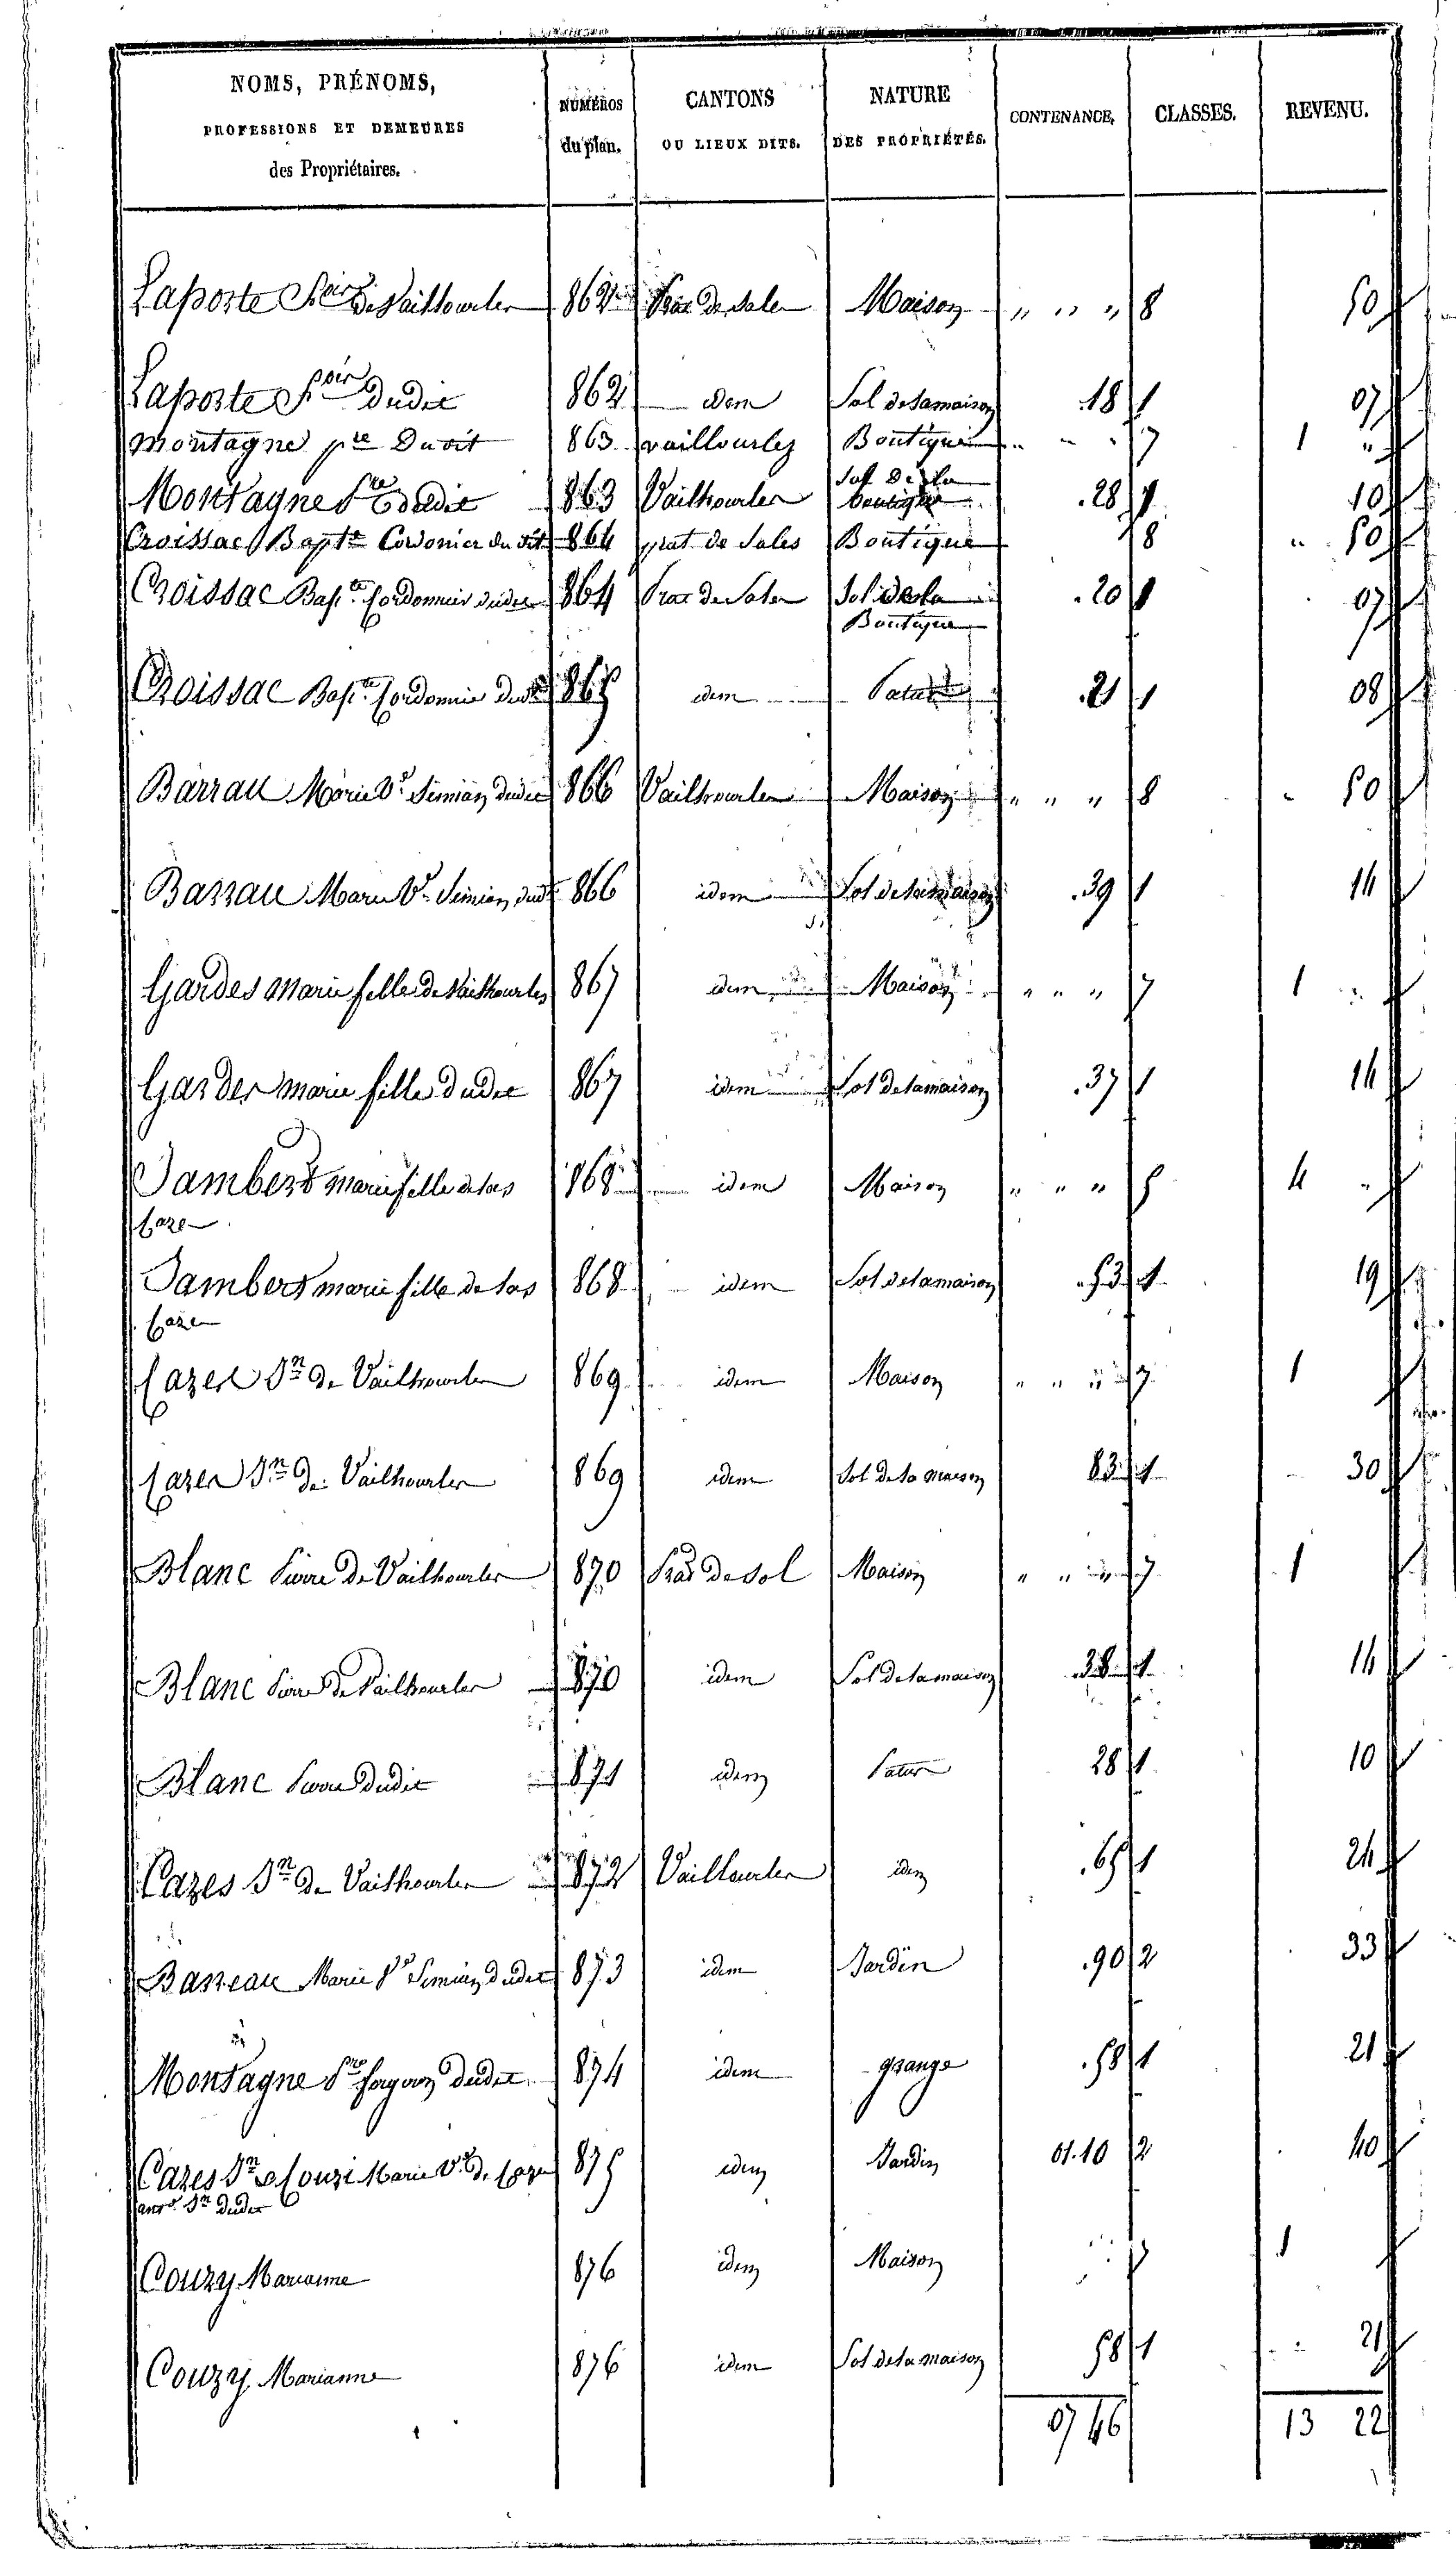 NOMS, PRÉNOMS, PROFESSIONS ET DEMEURES des Propriétaires. NUMÉROS du plan. CANTONS OU LIEUX DITS. NATURE DES PROPRIÉTÉS. CONTENANCE. CLASSES. REVENU.
Laposte de Vailhourles 862 Prat de Sales Maison " " " 8 50
Laposte dudit 862 idem Sol de la maison .18 1 07
Montagne pre Dudit 863 vailhourles Boutique " " " 7 1 "
Montagne Pre dudit 863 Vailhourles Sol De la boutique .28 1 10
Croissac Bapte Cordonier du dit 864 prat de Sales Boutique 8 " 50
Croissac Bapte Cordonnier dudit 864 Prat de Sales Sol de la Boutique .20 1 07
Croissac Bapte Cordonnier dudit 865 idem Patur .21 1 08
Barrau Marie Ve Simian dudit 866 Vailhourles Maison " " " 8 " 50
Barrau Marie Ve Simian dudt 866 idem Sol de la maison .39 1 14
Gardes Marie fille de Vailhourles 867 idem Maison " " " 7 1 "
Gardes marie fille dudit 867 idem Sol de la maison .37 1 14
Jambert marie fille de las 868 idem Maison " " " 5 4 "
Caze
Jambert marie fille de las 868 idem Sol de la maison .53 1 19
Caze
Cazes Jn de Vailhourles 869 idem Maison " " " 7 1
Cazes Jn de Vailhourles 869 idem Sol de la maison 83 1 30
Blanc Pierre De Vailhourles 870 Prat de Sol Maison " " " 7 1
Blanc Pierre de Vailhourles 870 idem Sol de la maison .38 1 14
Blanc Pierre dudit 871 idem Patur 28 1 10
Cazes Jn de Vailhourles 872 Vailhourles idem .65 1 24
Barrau Marie Ve Simian dudit 873 idem Jardin .90 2 33
Montagne Pre dudit 874 idem grange .58 1 21
Cazes Jn & Couzi Marie Ve de Cazes 875 idem Jardin 01.10 2 40
Jn dudit
Couzy Marianne 876 idem Maison 7 1
Couzy Marianne 876 idem Sol de la maison 58 1 21
07 46 13 22